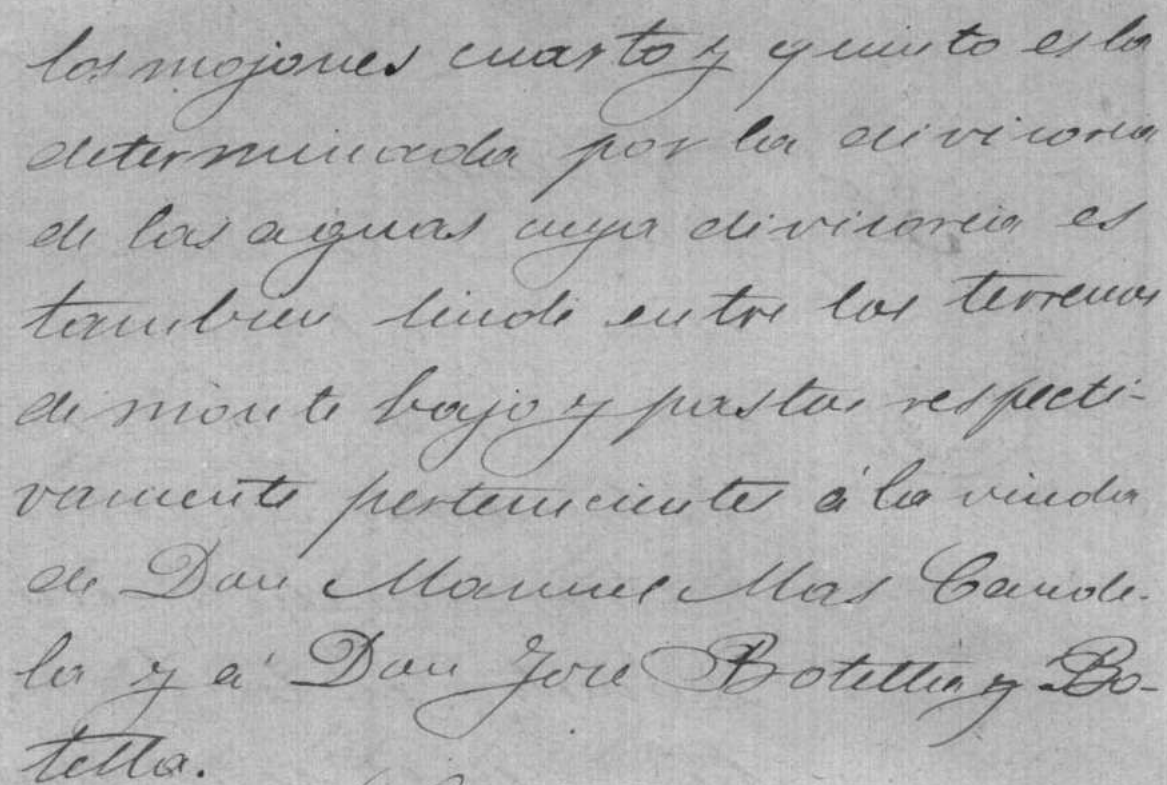 los mojones cuarto y quinto es la
determinada por la divisoria
de las aguas cuya divisoria es
tambien linde entre los terrenos
de monte bajo y pastos respecti-
vamente pertenecientes á la viuda
de Don Manuel Mas Cande-
la y á Don José Botella y Bo-
tella.